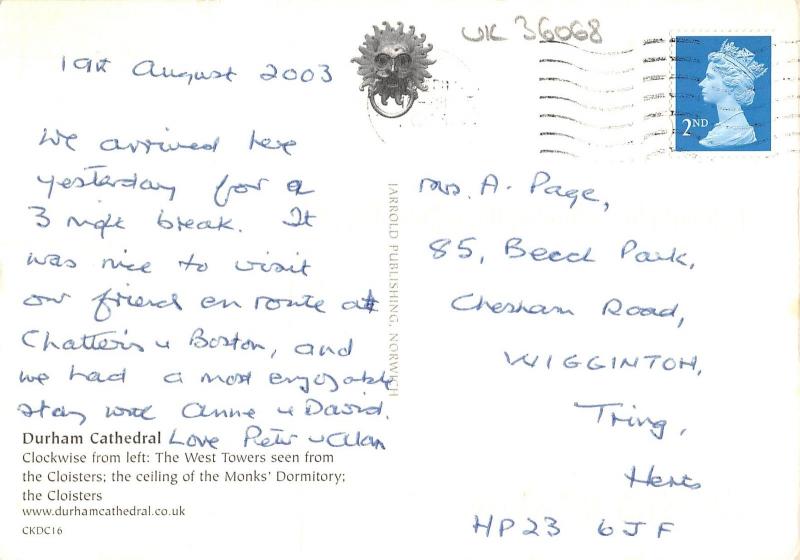 UK 36068
19th August 2003
2ND
We arrived here
yesterday for a
3 night break. It
was nice to visit
our friends en route at
Chatteris & Boston, and
we had a most enjoyable
stay with Anne & David.
Love Peter & Alan
Durham Cathedral
Clockwise from left: The West Towers seen from
the Cloisters; the ceiling of the Monks' Dormitory;
the Cloisters
www.durhamcathedral.co.uk
CKDC16
JARROLD PUBLISHING, NORWICH
Mrs. A. Page,
85, Beech Park,
Chesham Road,
WIGGINTON,
Tring,
Herts
HP23 6JF